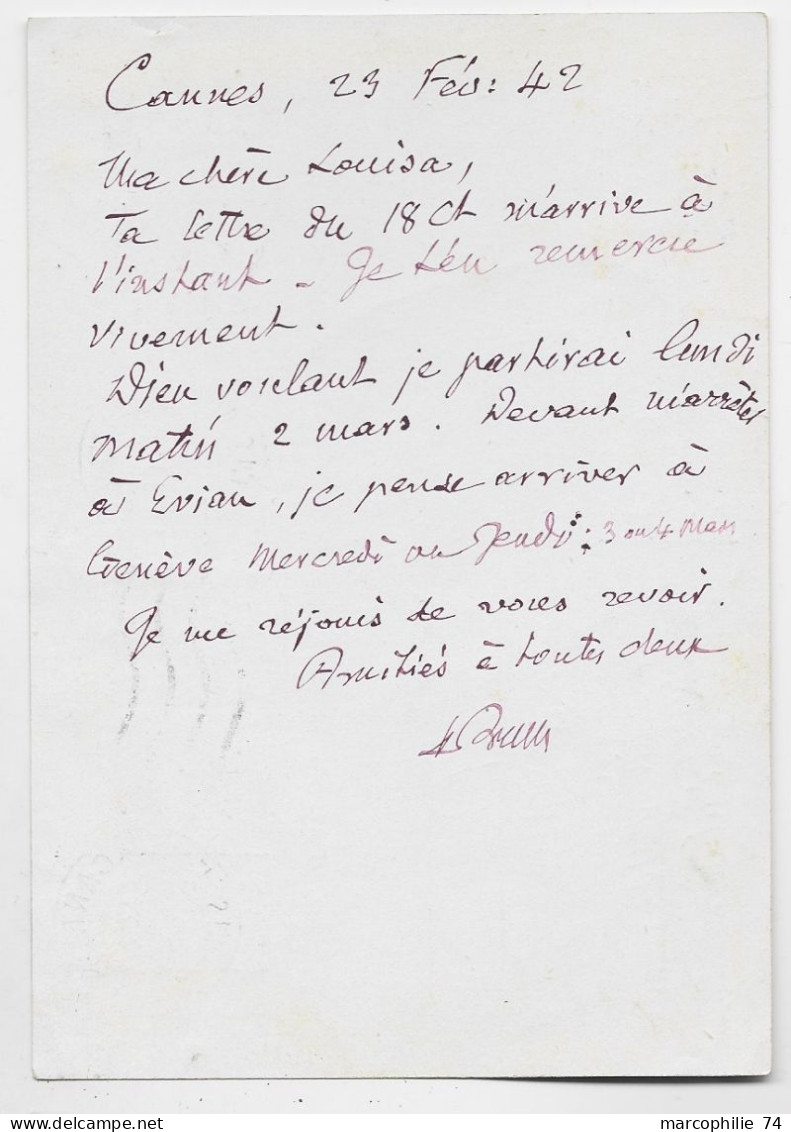 Cannes, 23 Fév: 42
Ma chère Louisa,
Ta lettre du 18 Ct m'arrive à
l'instant - Je t'en remercie
vivement.
Dieu voulant je partirai lundi
matin 2 mars. Devant m'arrêter
à Evian, je pense arriver à
Genève Mercredi ou Jeudi: 3 ou 4 Mars
Je me réjouis de vous revoir.
Amitiés à toutes deux
marcophilie 74